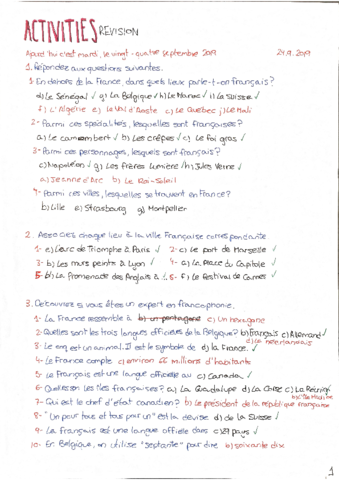 ACTIVITIES REVISION
Aujourd'hui c'est mardi, le vingt-quatre septembre 2019 24.9.2019
1. Répondez aux questions suivantes.
1- En dehors de la France, dans quels lieux parle-t-on français?
d) Le Sénégal ✓ g) La Belgique ✓ h) Le Maroc ✓ i) La Suisse ✓
f) L'Algérie e) Le Val d'Aoste c) Le Québec j) Le Mali
2- Parmi ces spécialités, lesquelles sont françaises?
a) Le camembert ✓ b) Les crêpes ✓ c) Le foi gras ✓
3- Parmi ces personnages, lesquels sont français?
c) Napoléon ✓ g) Les Frères Lumière ✓ h) Jules Verne ✓
a) Jeanne d'Arc b) Le Roi-Soleil
4- Parmi ces villes, lesquelles se trouvent en France?
b) Lille e) Strasbourg g) Montpellier
2. Associez chaque lieu à la ville Française correspondante
1- e) L'arc de Triomphe à Paris ✓ 2- c) Le port de Marseille ✓
3- b) Les murs peints à Lyon ✓ 4- a) La Place du Capitole ✓
5- d) La Promenade des Anglais à 5- f) Le Festival de Cannes ✓
3. Découvrez si vous êtes un expert en francophonie.
1- La France ressemble à b) un pentagone c) Un hexagone
2- Quelles sont les trois langues officielles de la Belgique? b) Français c) Allemand ✓
d) Le néerlandais
3- Le coq est un animal. Il est le symbole de d) la France. ✓
4- La France compte c) environ 66 millions d'habitants
5- Le Français est une langue officielle au c) Canada. ✓
6- Quelles son les îles françaises? a) La Guadalupe d) La Corse c) La Réunion
7- Qui est le chef d'état canadien? b) Le président de la république française
8- "Un pour tous et tous pour un" est la devise d) de la Suisse ✓
9- Le Français est une langue officielle dans c) 29 pays ✓
10- En Belgique, on utilise "septante" pour dire b) soixante dix
1